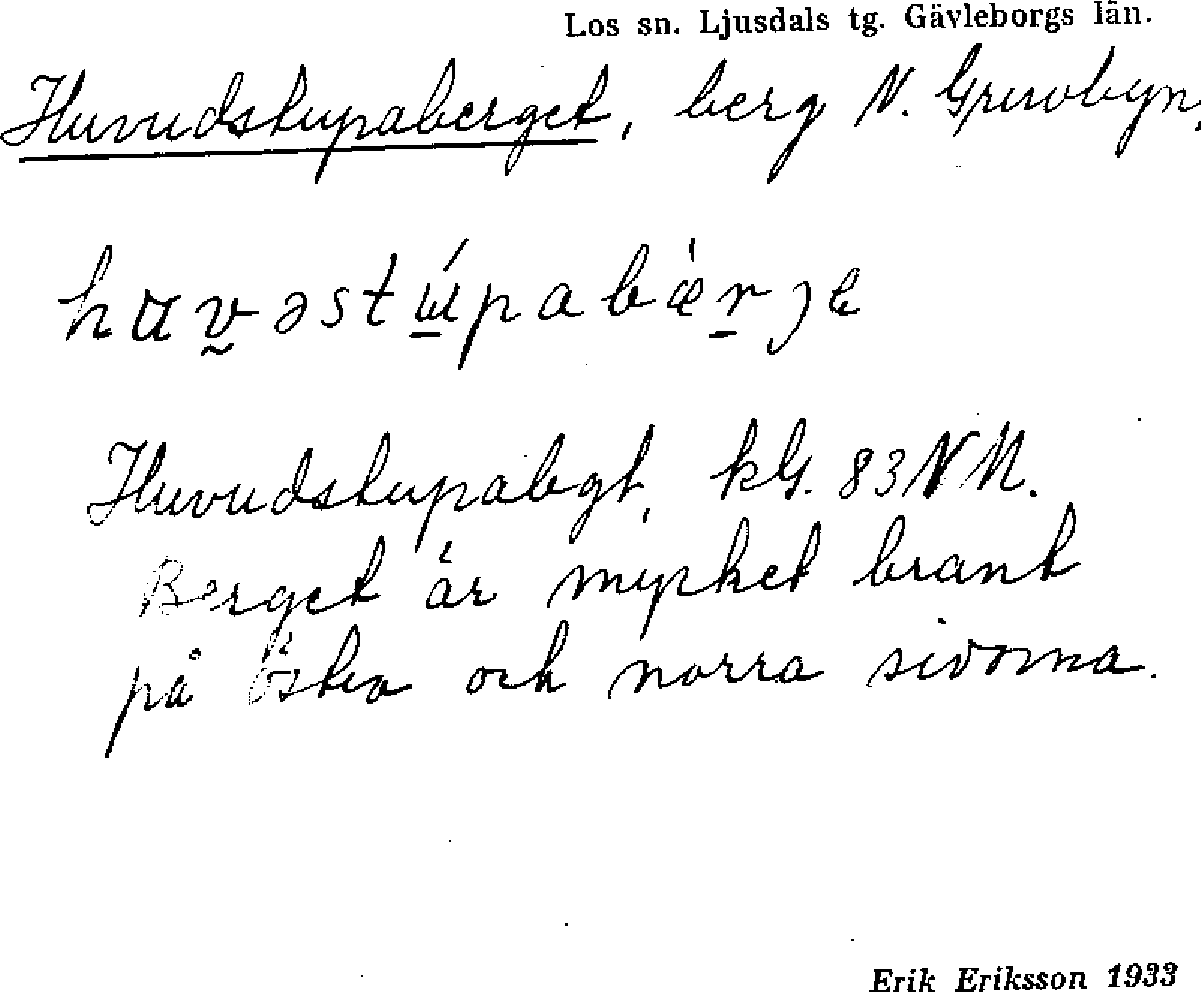 Los sn. Ljusdals tg. Gävleborgs län.
Huvudstupaberget, berg N. Gruvbyn.
havəstúpabærje
Huvudstupabgt, kG. 83 NM.
Berget är mycket brant
på östra och norra sidorna.
Erik Eriksson 1933